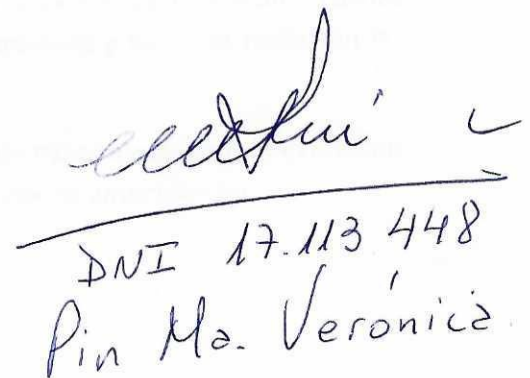 DNI 17.113 448
Pin Ma. Verónica